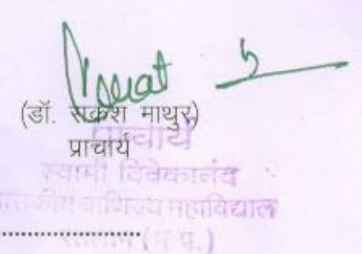 (डॉ. सकेश माथुर)
प्राचार्य
प्राचार्य
स्वामी विवेकानंद
वाणिज्य महाविद्याल
रतलाम (म.प्र.)